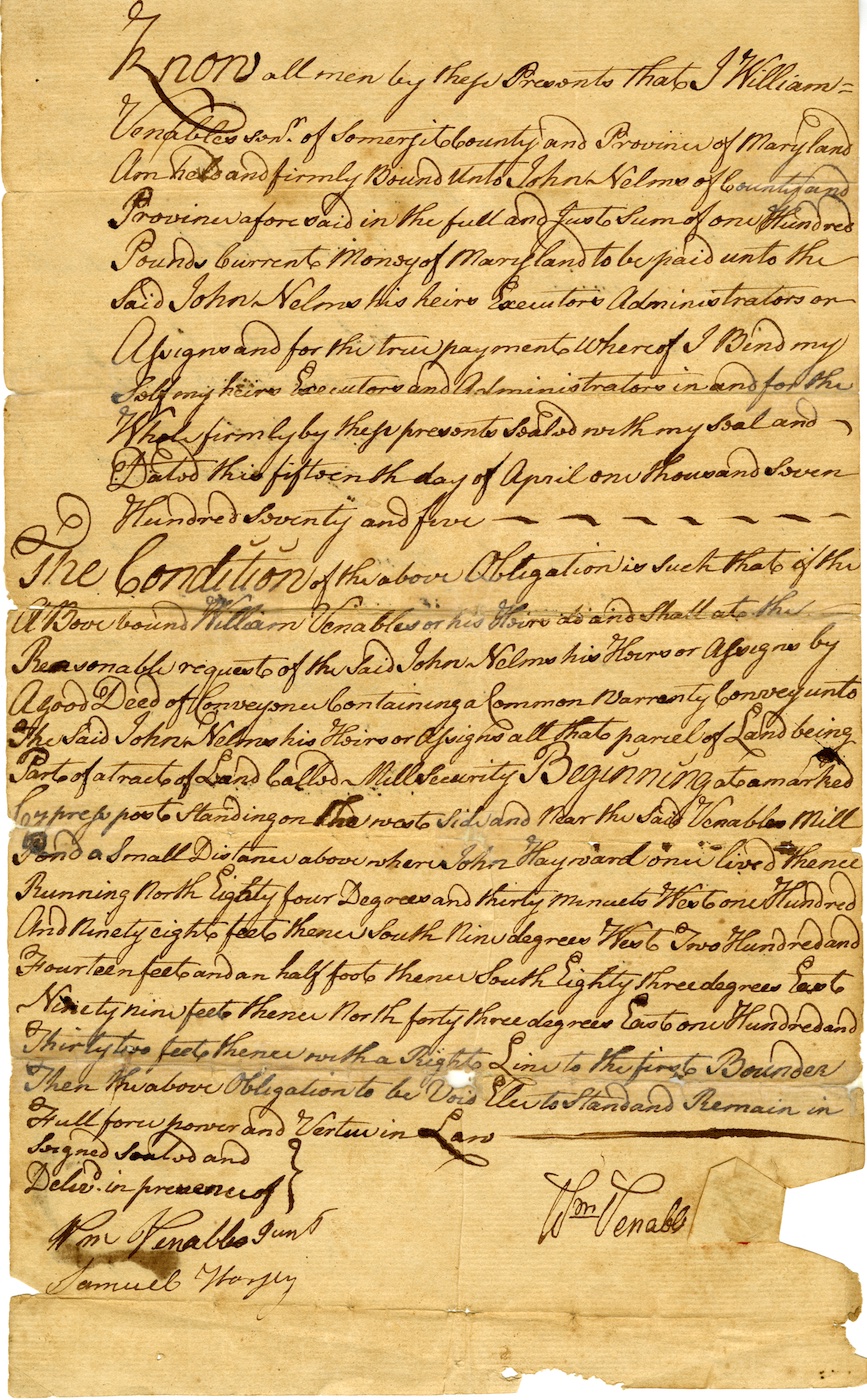 Know all men by these Presents that I William=
Venables senr. of Somersit County and Province of Maryland
Am held and firmly Bound Unto John Nelms of County and
Province afore said in the full and Just Sum of one Hundred
Pounds Current Money of Maryland to be paid unto the
Said John Nelms his heirs Executors Administrators or
Assigns and for the true payment Whereof I Bind my
Self my heirs Executors and Administrators in and for the
Whole firmly by these presents sealed with my seal and
Dated this fifteenth day of April one thousand Seven
Hundred Seventy and five
The Condition of the above Obligation is Such that if the
A Bove bound William Venables or his Heirs do and Shall at the
Reasonable request of the Said John Nelms his Heirs or Assigns by
A good Deed of Conveyonce Containing a Common Warrenty Convey unto
The Said John Nelms his Heirs or Assigns all that parcel of Land being
Part of a tract of Land Called Mill Security Beginning at a marked
Cypress post Standing on the west Side and Near the Said Venables Mill
Pond a Small Distance above where John Hayward once lived thence
Running North Eighty four Degrees and thirty minuets West one Hundred
And Ninety eight feet thence South Nine degrees West Two Hundred and
Fourteen feet and an half foot thence South Eighty three degrees East
Ninety nine feet thence North forty three degrees East one Hundred and
Thirty two feet thence with a Right Line to the first Bounder
Then the above Obligation to be Void Else to Stand and Remain in
Full force power and Vertue in Law
Seigned Sealed and
Delivd. in presence of
Wm Venables
Wm Venables Junr
Samuel